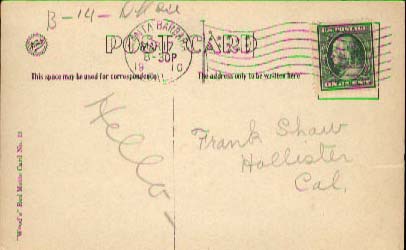 B-14-
SANTA BARBARA
POST CARD
17
8-30P
19 10
U.S. POSTAGE
ONE CENT
This space may be used for correspondence
The address only to be written here
Hello-
Frank Shaw
Hollister
Cal.
"Wood's" Red Matte Card No.